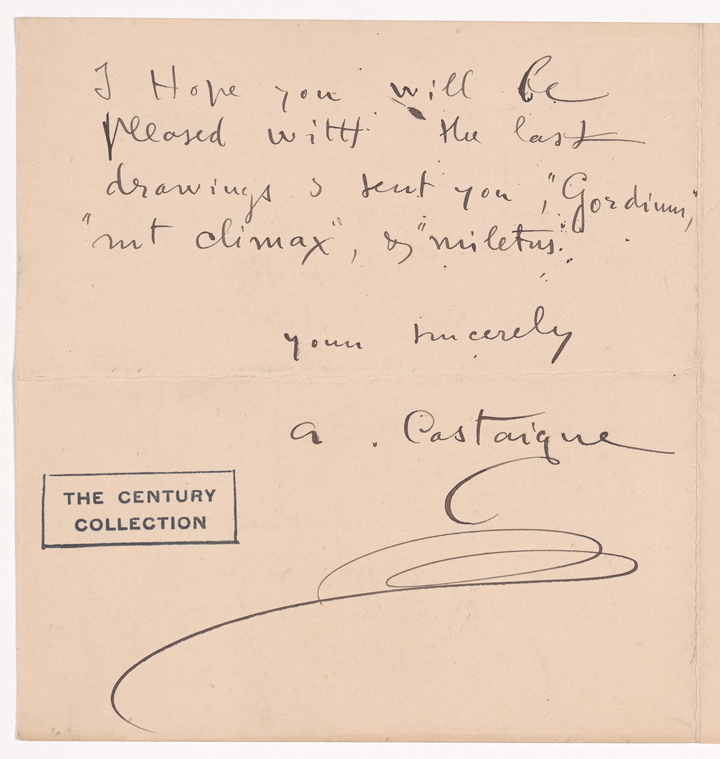 I Hope you will be
pleased with the last
drawings I sent you, "Gordium,"
"mt climax", & "miletus".
yours sincerely
a. Castaigne
THE CENTURY
COLLECTION